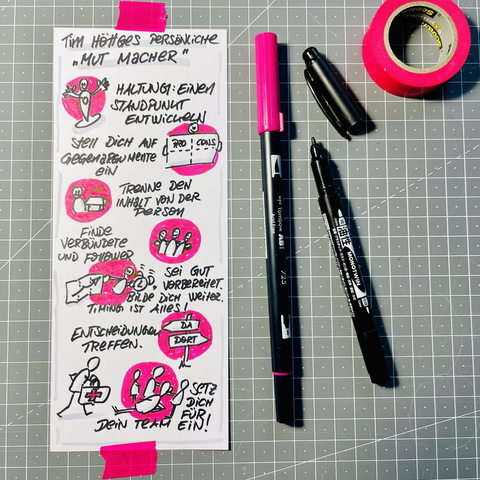 TIM HÖTTGES PERSÖNLICHE
„MUT MACHER"
HALTUNG: EINEN
STANDPUNKT
ENTWICKELN
STELL DICH AUF
GEGENARGUMENTE
EIN
PRO CONS
TRENNE DEN
INHALT VON DER
PERSON
FINDE
VERBÜNDETE
UND FOLLOWER
SEI GUT
VORBEREITET.
BILDE DICH WEITER.
TIMING IST ALLES!
ENTSCHEIDUNGEN
TREFFEN.
DA
DORT
SETZ
DICH
FÜR
DEIN TEAM EIN!
ABT
725
MONO TWIN